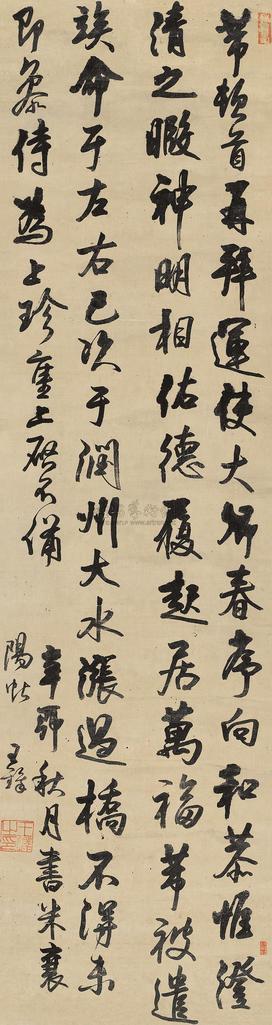 芾頓首再拜運使大郎春序向和恭惟澄
清之暇神明相佑德履起居萬福芾被遣
俟命于左右已次于潤州大水漲過橋不得來
即參侍為上珍重上啓不備
辛卯秋月書米襄
陽 王鐸